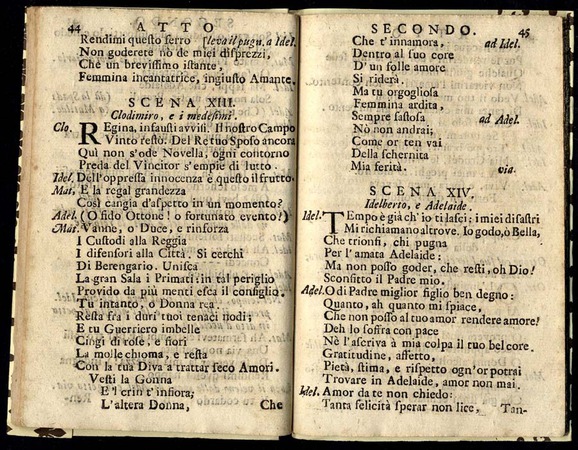 44 ATTO
Rendimi questo ferro sleva il pugn. a Idel.
Non goderete nò de miei disprezzi,
Che un brevissimo istante,
Femmina incantatrice, ingiusto Amante.
SCENA XIII.
Clodimiro, e i medesimi.
Clo. REgina, infausti avvisi. Il nostro Campo
Vinto restò. Del Re tuo Sposo ancora
Quì non s'ode Novella; ogni contorno
Preda del Vincitor s'empie di lutto.
Idel. Dell'oppressa innocenza è questo il frutto.
Mat. E la regal grandezza
Così cangia d'aspetto in un momento?
Adel. (O fido Ottone! o fortunato evento!)
Mat. Vanne, o Duce, e rinforza
I Custodi alla Reggia
I difensori alla Città. Si cerchi
Di Berengario. Unisca
La gran Sala i Primati: in tal periglio
Provido da più menti esca il consiglio.
Tu intanto, o Donna rea.
Resta fra i duri tuoi tenaci nodi;
E tu Guerriero imbelle
Cingi di rose, e fiori
La molle chioma, e resta
Con la tua Diva a trattar seco Amori.
Vesti la Gonna
E'l crin t'infiora;
L'altera Donna,
Che
SECONDO. 45
Che t'innamora, ad Idel.
Dentro al suo core
D'un folle amore
Si riderà.
Ma tu orgogliosa
Femmina ardita,
Sempre fastosa ad Adel.
Nò non andrai;
Come or ten vai
Della schernita
Mia ferità. via.
SCENA XIV.
Idelberto, e Adelaide.
Idel. TEmpo è già ch'io ti lasci: i miei disastri
Mi richiamano altrove. Io godo, ò Bella,
Che trionfi, chi pugna
Per l'amata Adelaide:
Ma non posso goder, che resti, oh Dio!
Sconfitto il Padre mio.
Adel. O di Padre miglior figlio ben degno:
Quanto, ah quanto mi spiace,
Che non posso al tuo amor rendere amore!
Deh lo soffra con pace
Nè l'ascriva à mia colpa il tuo bel core.
Gratitudine, affetto,
Pietà, stima, e rispetto ogn'or potrai
Trovare in Adelaide, amor non mai.
Idel. Amor da te non chiedo:
Tanta felicità sperar non lice,
Tan-